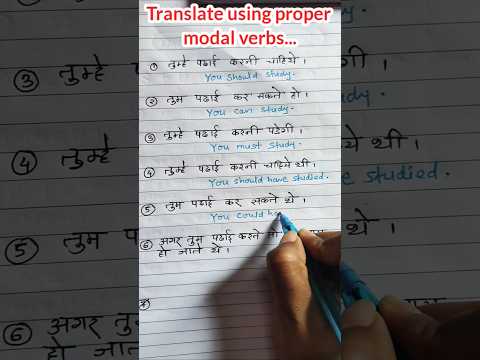 Translate using proper
modal verbs...
① तुम्हे पढाई करनी चाहिये ।
You should study.
② तुम पढाई कर सकते हो ।
You can study.
③ तुम्हे पढाई करनी पड़ेगी ।
You must study.
④ तुम्हे पढाई करनी चाहिये थी ।
You should have studied.
⑤ तुम पढाई कर सकते थे ।
You could ha
⑥ अगर तुम पढाई करते तो
हो जाते थे ।